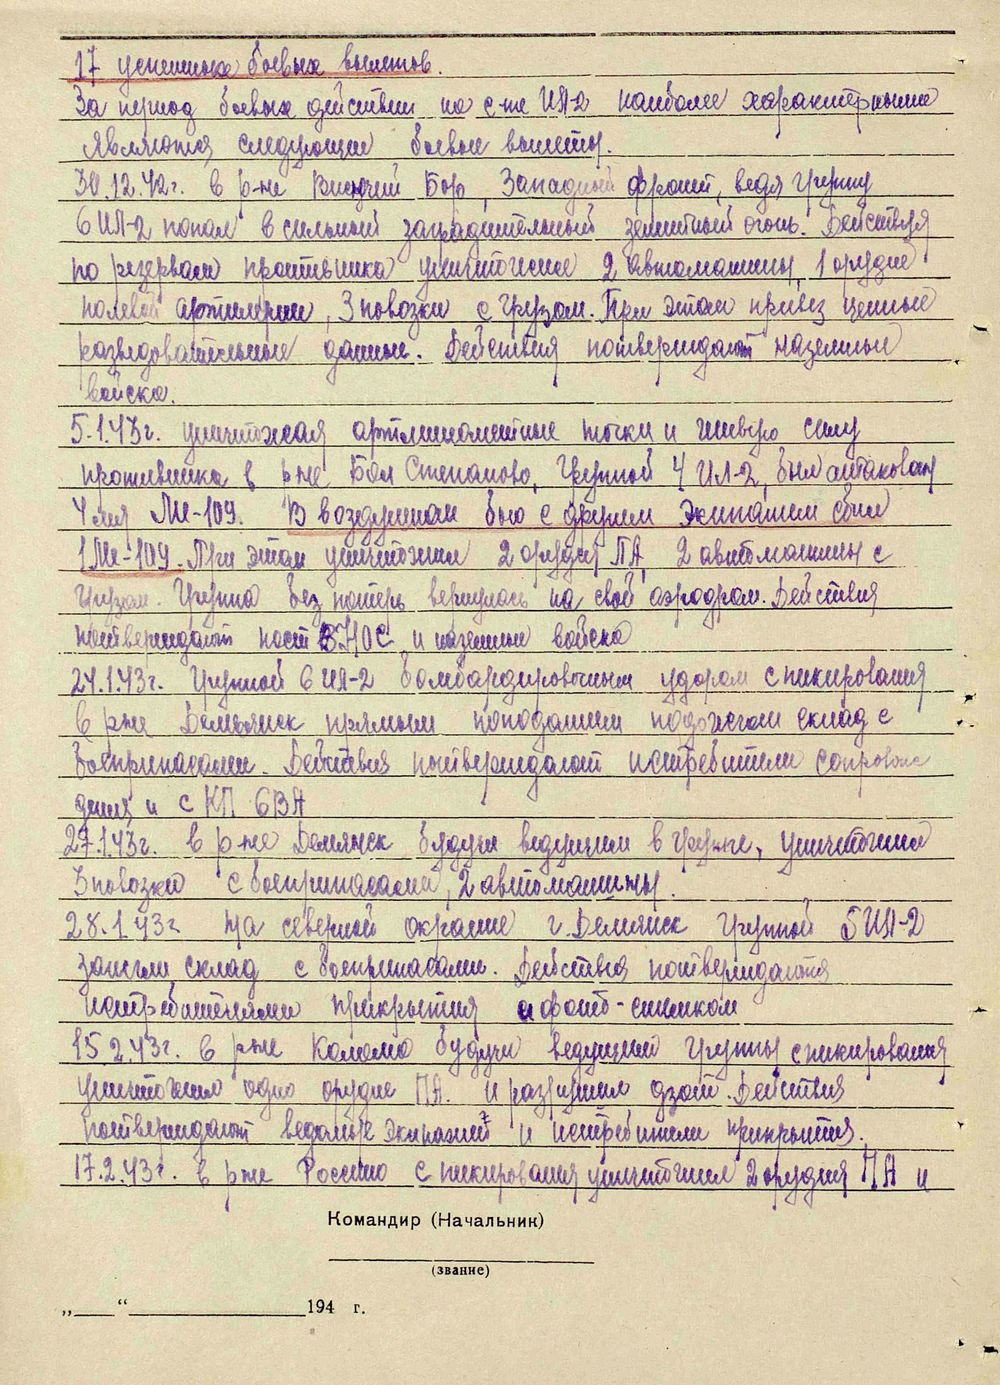 17 успешных боевых вылетов.
За период боевых действий на с-те ИЛ-2 наиболее характерными
являются следующие боевые вылеты.
30.12.42г. в р-не Бор, Западный фронт, ведя группу
6 ИЛ-2 попал в сильный заградительный зенитный огонь. Действуя
по резервам противника уничтожено 2 автомашины, 1 орудие
полевой артилерии, 3 повозки с грузом. При этом привез ценные
разведовательные данные. Действия потверждают наземные
войска.
5.1.43г. уничтожая артминометные точки и живую силу
противника в р-не Бол Степаново, группой 4 ИЛ-2, был атакован
4-мя Ме-109. В воздушном бою с другим экипажем сбил
1 Ме-109. При этом уничтожил 2 орудия ПА, 2 автомашины с
грузом. Группа без потерь вернулась на свой аэродром. Действия
потверждают пост ВНОС и наземные войска
24.1.43г. Группой 6 ИЛ-2 бомбардировочным ударом с пикирования
в р-не Демьянск прямым попаданием подожгли склад с
боеприпасами. Действия потверждают истребители сопровож
дения и с КП 6ВА
27.1.43г. в р-не Демянск будучи ведущим в группе, уничтожил
3 повозки с боеприпасами, 2 автомашины.
28.1.43г на северной окраине г. Демянск группой 5 ИЛ-2
зажгли склад с боеприпасами. Действия потверждаются
истребителями прикрытия и фото-снимком
15.2.43г. в р-не Каломо будучи ведущим группы с пикирования
уничтожил одно орудие ПА. и разрушил дзот. Действия
потверждают ведомые экипажи и истребители прикрытия.
17.2.43г. в р-не Россино с пикирования уничтожил 2 орудия ПА и
Командир (Начальник)
(звание)
„___“ ______________194 г.